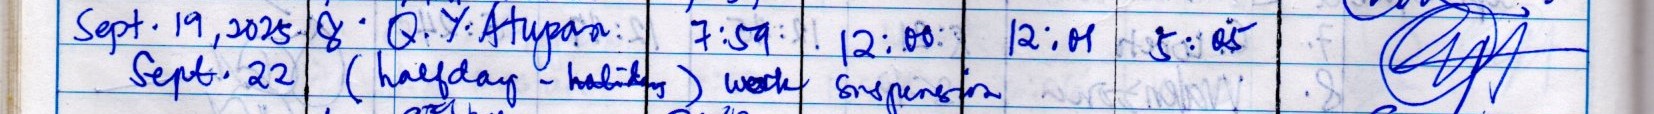 Sept. 19, 2025. 8. Q. Y. Atupan 7:59 12:00 12:01 5:05
Sept. 22 (halfday - holiday) work suspension